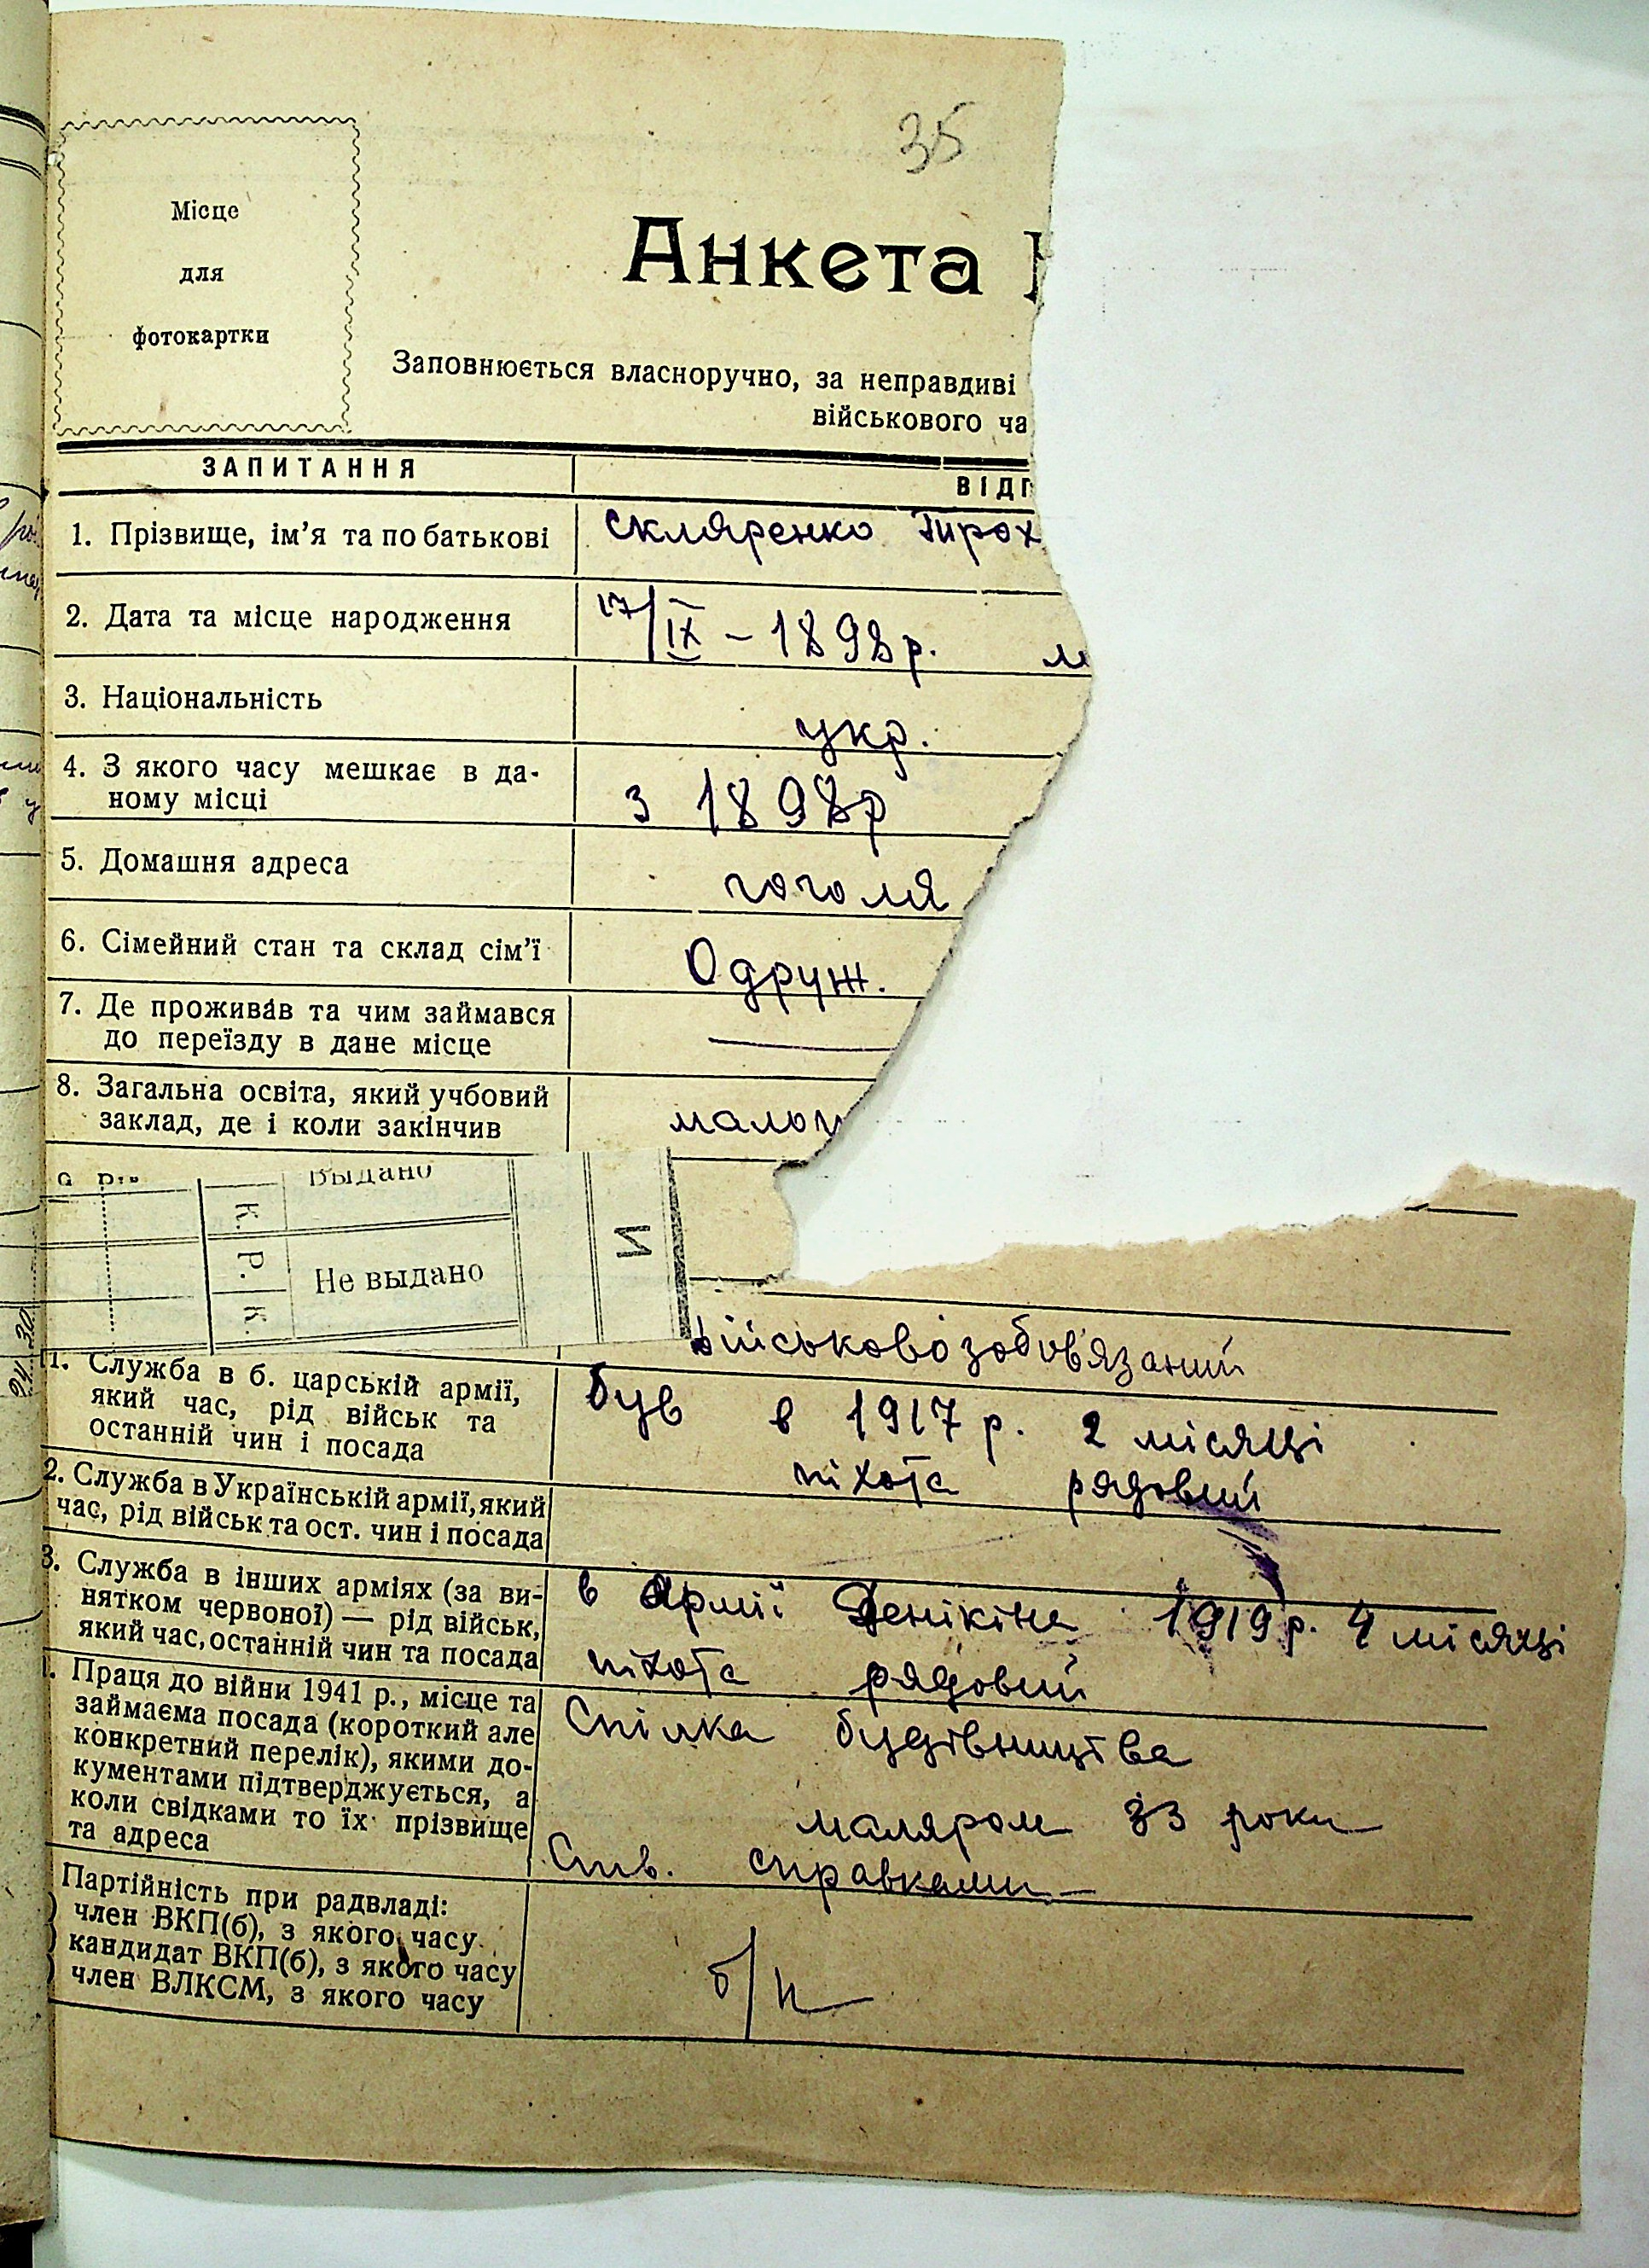 35
Місце
для
фотокартки
Анкета
Заповнюється власноручно, за неправдиві
військового ча
ЗАПИТАННЯ
ВІДП
1. Прізвище, ім'я та по батькові
Скляренко Тирох
2. Дата та місце народження
17/IX – 1898р. м
3. Національність
укр.
4. З якого часу мешкає в да-
ному місці
з 1898р
5. Домашня адреса
гоголя
6. Сімейний стан та склад сім'ї
Одруж.
7. Де проживав та чим займався
до переїзду в дане місце
8. Загальна освіта, який учбовий
заклад, де і коли закінчив
малоп
Выдано
К. Р. К.
Не выдано
И
військовозобов'язаний
11. Служба в б. царській армії,
який час, рід військ та
останній чин і посада
був в 1917 р. 2 місяці
піхота рядовий
2. Служба в Українській армії, який
час, рід військ та ост. чин і посада
3. Служба в інших арміях (за ви-
нятком червоної) — рід військ,
який час, останній чин та посада
в Армії Денікіна 1919р. 4 місяці
піхота рядовий
Праця до війни 1941 р., місце та
займаєма посада (короткий але
конкретний перелік), якими до-
кументами підтверджується, а
коли свідками то їх прізвище
та адреса
Спілка будівництва
маляром 33 роки
Спв. справками
Партійність при радвладі:
член ВКП(б), з якого часу
кандидат ВКП(б), з якого часу
член ВЛКСМ, з якого часу
б/п